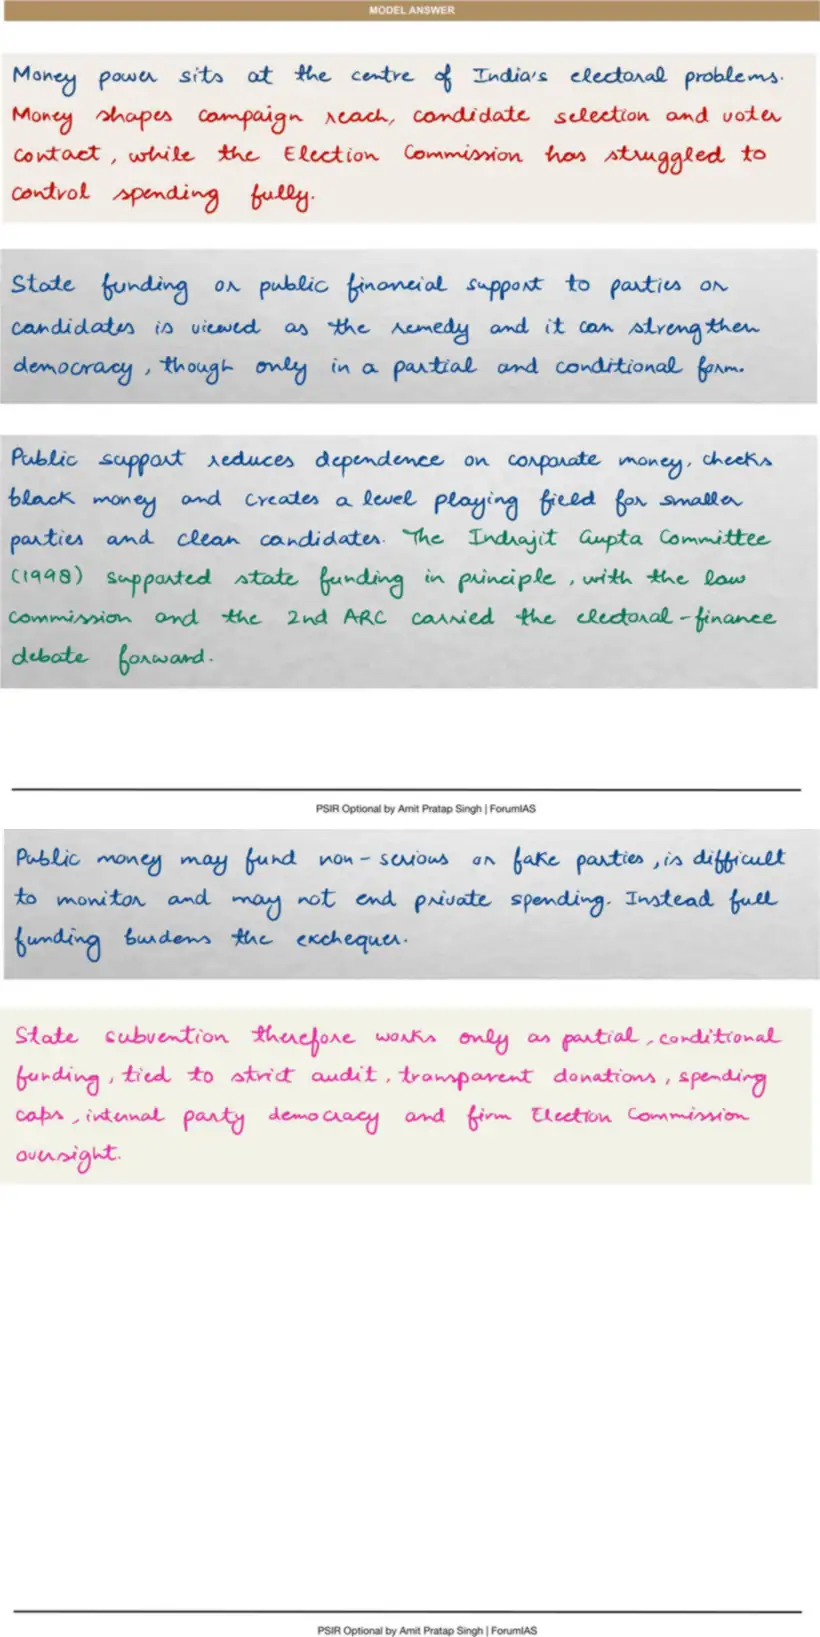 MODEL ANSWER
Money power sits at the centre of India's electoral problems.
Money shapes campaign reach, candidate selection and voter
contact, while the Election Commission has struggled to
control spending fully.
State funding or public financial support to parties or
candidates is viewed as the remedy and it can strengthen
democracy, though only in a partial and conditional form.
Public support reduces dependence on corporate money, checks
black money and creates a level playing field for smaller
parties and clean candidates. The Indrajit Gupta Committee
(1998) supported state funding in principle, with the law
commission and the 2nd ARC carried the electoral-finance
debate forward.
PSIR Optional by Amit Pratap Singh | ForumIAS
Public money may fund non-serious or fake parties, is difficult
to monitor and may not end private spending. Instead full
funding burdens the exchequer.
State subvention therefore works only as partial, conditional
funding, tied to strict audit, transparent donations, spending
caps, internal party democracy and firm Election Commission
oversight.
PSIR Optional by Amit Pratap Singh | ForumIAS